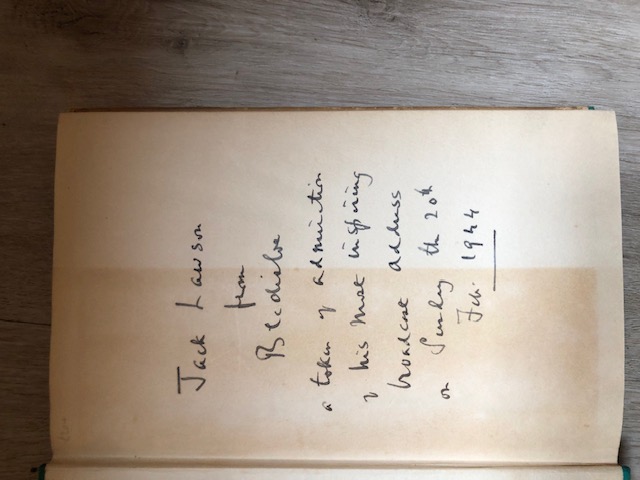 Jack Lawson
from
Bledisloe
a token of admiration
of his most inspiring
broadcast address
on Sunday the 20th
Feb. 1944